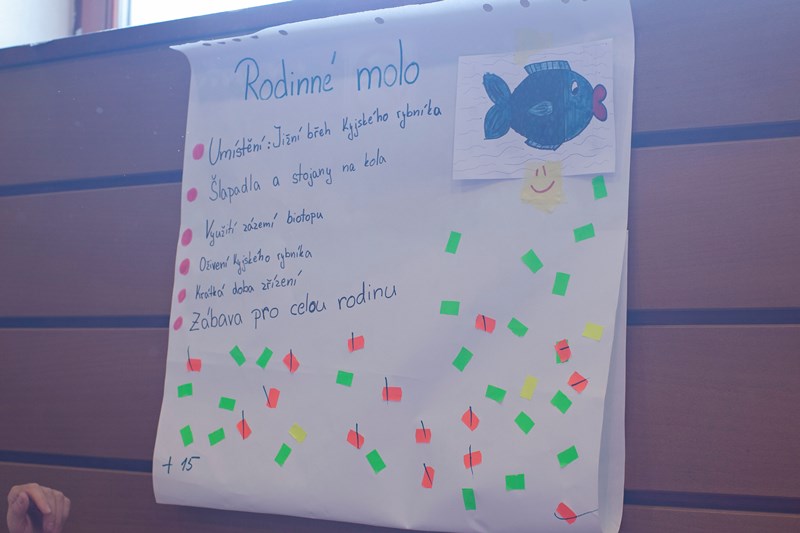 Rodinné molo
Umístění: Jižní břeh Kyjského rybníka
Šlapadla a stojany na kola
Využití zázemí biotopu
Oživení Kyjského rybníka
Krátká doba zřízení
Zábava pro celou rodinu
+ 15